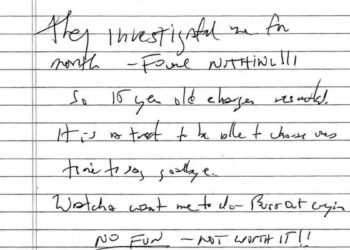 They investigated me for
month — Found NOTHING!!!
So 15 year old charges resulted.
It is a treat to be able to choose ones
time to say goodbye.
Watcha want me to do — Bursт out cryin
NO FUN — NOT WORTH IT!!